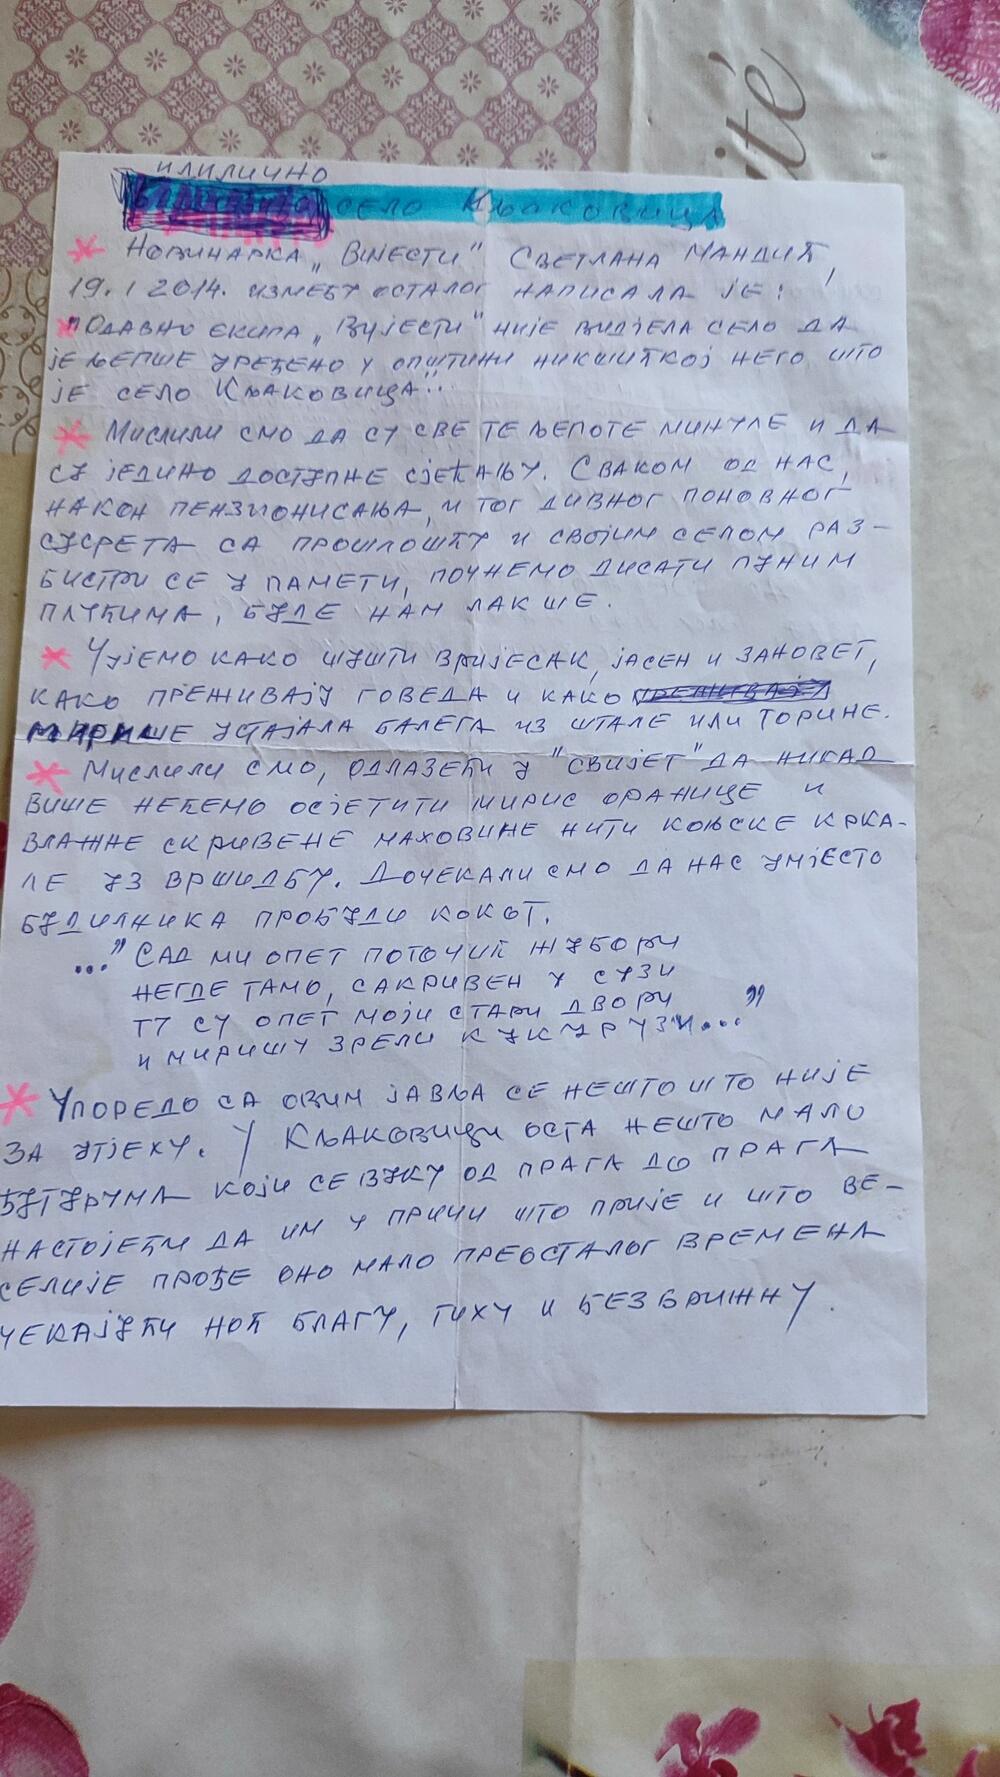 илилично
село Књаковица
* Новинарка „Вијести" Светлана Мандић,
19. 1 2014. између осталог написала је:
* "Одавно екипа „Вијести" није видјела село да
је љепше уређено у општини никшићкој него што
је село Књаковица"..
* Мислили смо да су све те љепоте минуле и да
су једино доступне сјећању. Сваком од нас,
након пензионисања, и тог дивног поновног
сусрета са прошлошћу и својим селом раз-
бистри се у памети, почнемо дисати пуним
плућима, буде нам лакше.
* Чујемо како шушти вријесак, јасен и зановет,
како преживају говеда и како
мирише устајала балега из штале или торине.
* Мислили смо, одлазећи у "свијет" да никад
више нећемо осјетити мирис оранице и
влажне скривене маховине нити коњске крка-
ле уз вршидбу. Дочекали смо да нас умјесто
будилника пробуди кокот.
..." Сад ми опет поточић жубори
негде тамо, сакривен у сузи
ту су опет моји стари двори
и миришу зрели кукурузи..."
* Упоредо са овим јавља се нешто што није
за утјеху. У Књаковици оста нешто мало
бутурума који се вуку од прага до прага
настојећи да им у причи што прије и што ве-
селије прође оно мало преосталог времена
чекајући ноћ благу, тиху и безбрижну.